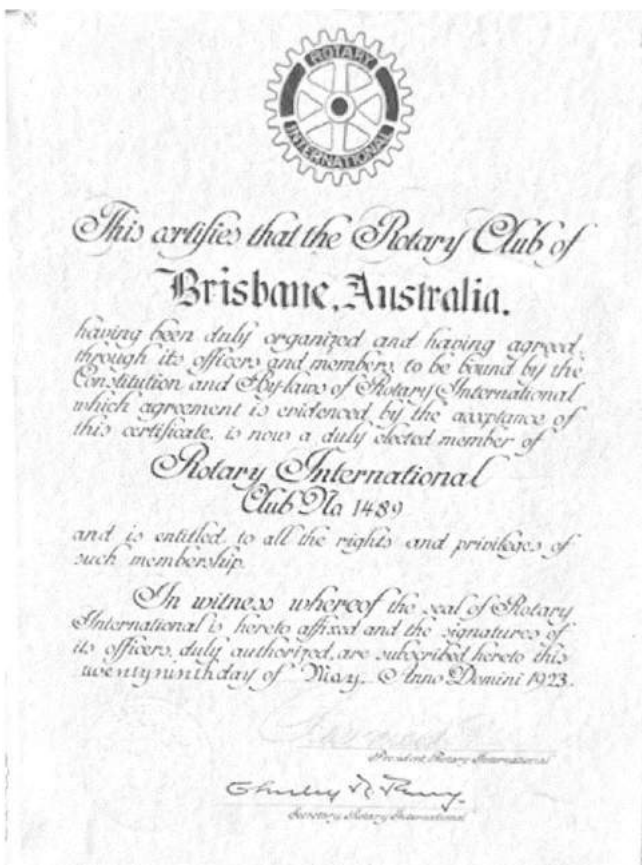 ROTARY
INTERNATIONAL
This certifies that the Rotary Club of
Brisbane, Australia.
having been duly organized and having agreed,
through its officers and members, to be bound by the
Constitution and By-laws of Rotary International
which agreement is evidenced by the acceptance of
this certificate, is now a duly elected member of
Rotary International
Club No 1489
and is entitled to all the rights and privileges of
such membership.
In witness whereof the seal of Rotary
International is hereto affixed and the signatures of
its officers, duly authorized, are subscribed hereto this
twenty ninth day of May. Anno Domini 1923.
President Rotary International
Secretary Rotary International